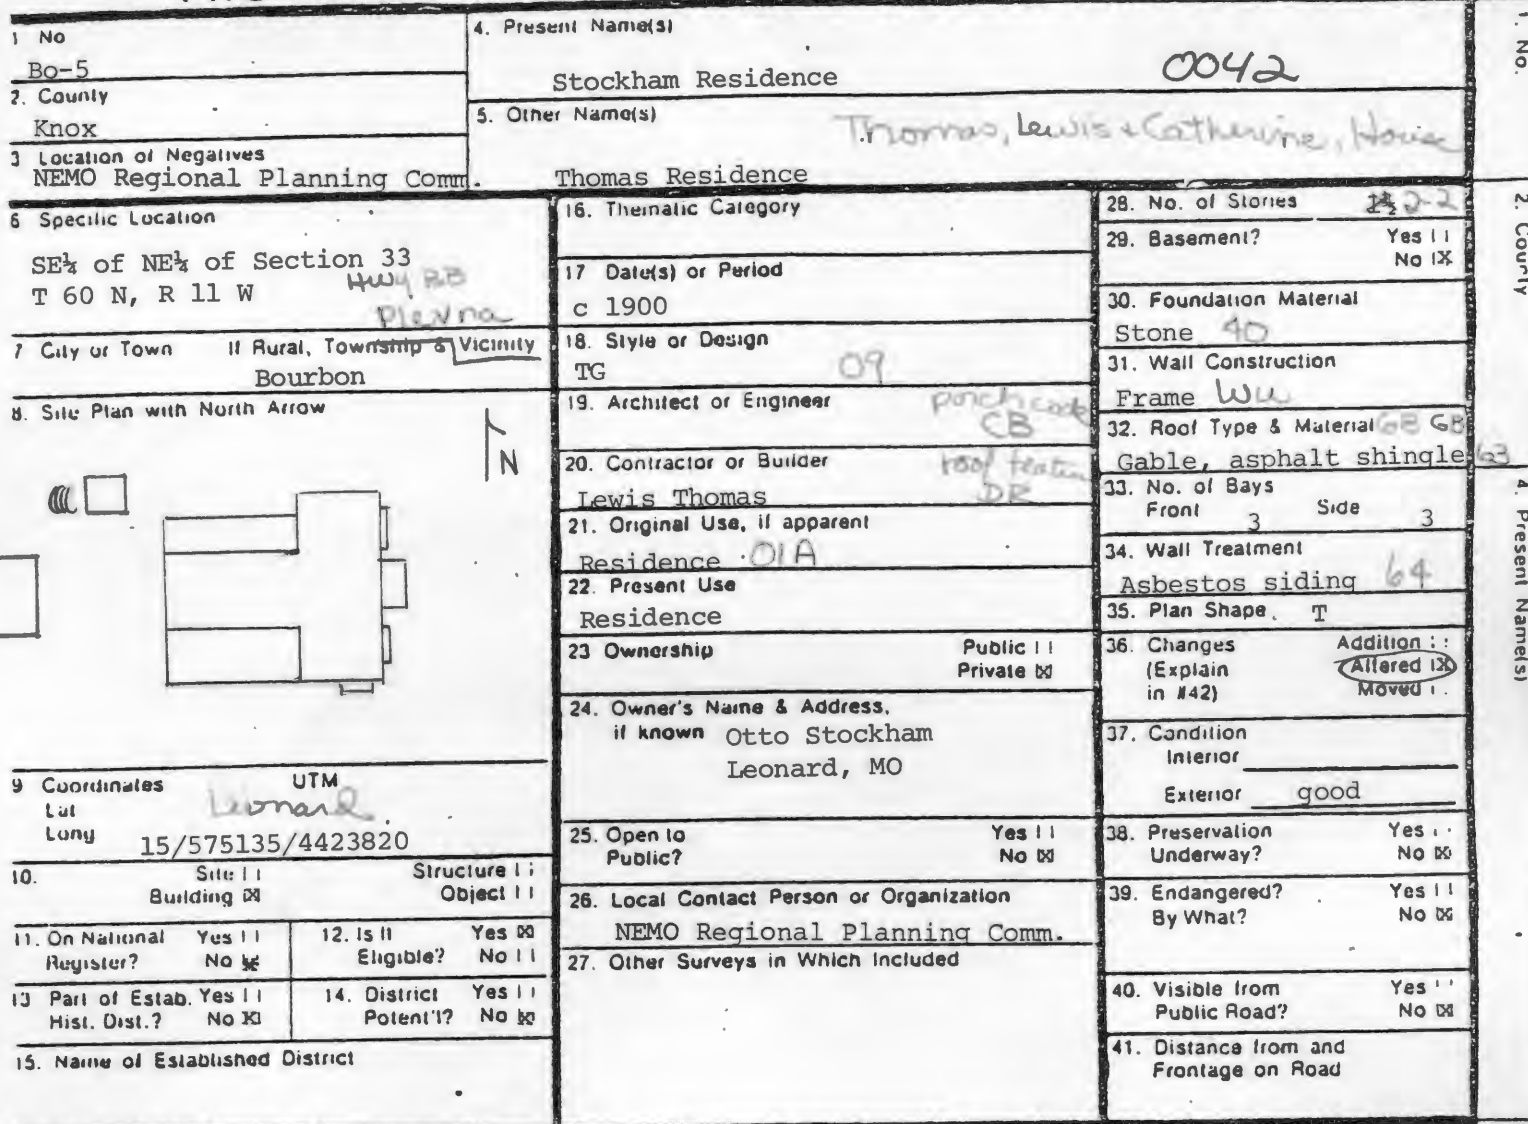 1 No
Bo-5
2. County
Knox
3 Location of Negatives
NEMO Regional Planning Comm.
4. Present Name(s)
Stockham Residence
0042
5. Other Name(s)
Thomas, Lewis + Catherine, House
Thomas Residence
6 Specific Location
SE¼ of NE¼ of Section 33
T 60 N, R 11 W
Hwy BB
Plevna
7 City or Town If Rural, Township & Vicinity
Bourbon
8. Site Plan with North Arrow
N
9 Coordinates UTM
Lat
Leonard
Long
15/575135/4423820
10. Site Structure
Building ☒ Object
11. On National Yes
Register? No ☒
12. Is It Yes ☒
Eligible? No
13 Part of Estab. Yes
Hist. Dist.? No ☒
14. District Yes
Potent'l? No ☒
15. Name of Established District
16. Thematic Category
17 Date(s) or Period
c 1900
18. Style or Design
TG 09
19. Architect or Engineer
porch code
CB
20. Contractor or Builder
Lewis Thomas
roof
DR
21. Original Use, if apparent
Residence 01A
22. Present Use
Residence
23 Ownership Public
Private ☒
24. Owner's Name & Address,
if known Otto Stockham
Leonard, MO
25. Open to Yes
Public? No ☒
26. Local Contact Person or Organization
NEMO Regional Planning Comm.
27. Other Surveys in Which Included
28. No. of Stories 2-2
29. Basement? Yes
No ☒
30. Foundation Material
Stone 40
31. Wall Construction
Frame
32. Roof Type & Material GB GB
Gable, asphalt shingle 63
33. No. of Bays
Front 3 Side 3
34. Wall Treatment
Asbestos siding 64
35. Plan Shape. T
36. Changes Addition
(Explain Altered ☒
in #42) Moved
37. Condition
Interior
Exterior good
38. Preservation Yes
Underway? No ☒
39. Endangered? Yes
By What? No ☒
40. Visible from Yes
Public Road? No ☒
41. Distance from and
Frontage on Road
1. No.
2. County
4. Present Name(s)